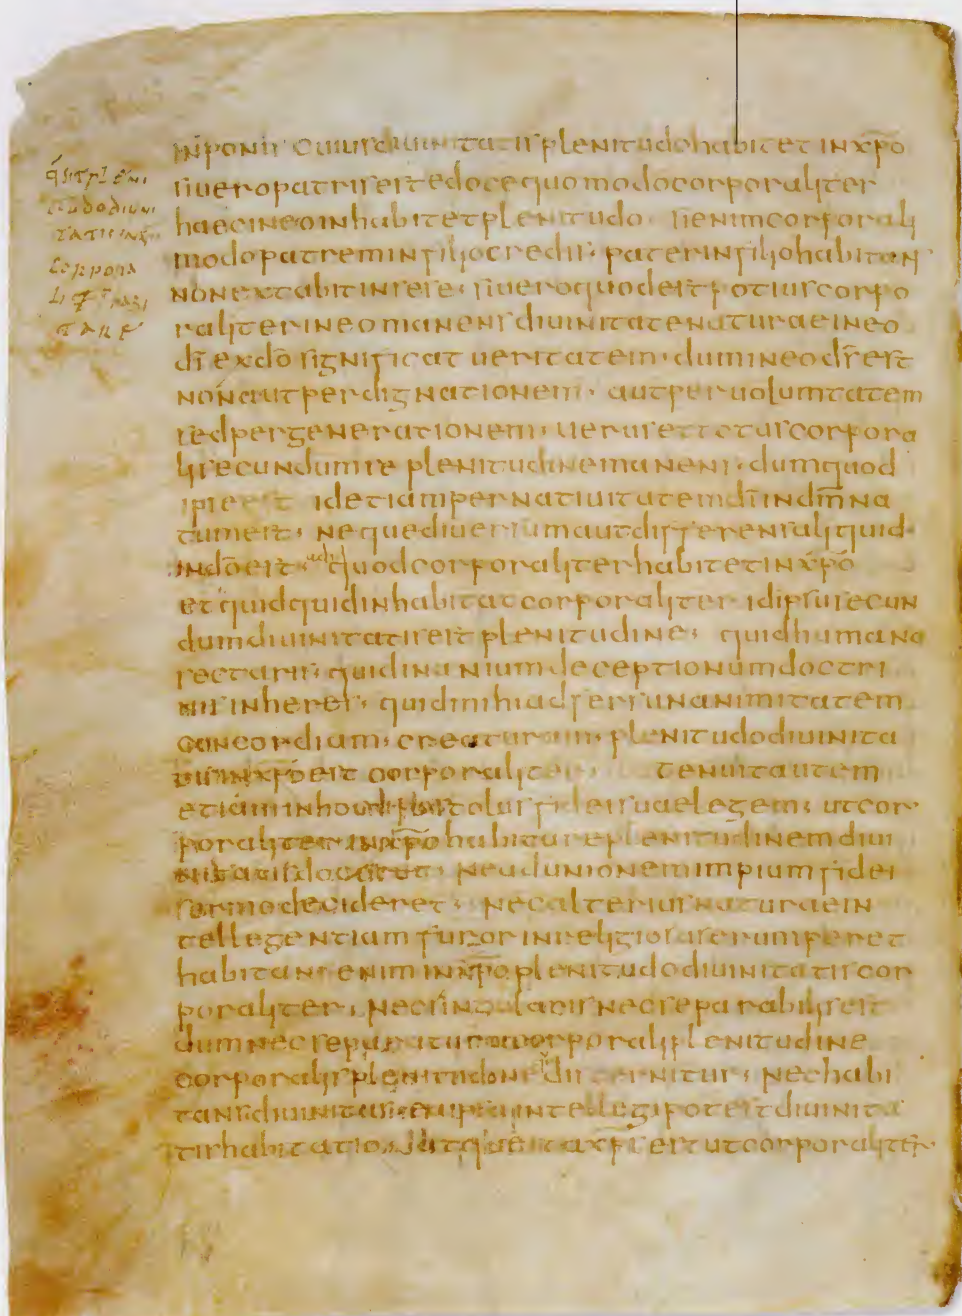 q̄ sit pleni
tudo diuini
tatis in xp̄o
corpora
inponis cuius diuinitatis plenitudo habitet in xp̄o
si uero patris est edoce quomodo corporaliter
haec in eo inhabitet plenitudo· si enim corporali
modo patrem in filio credis· pater in filio habitans
non extabit in sese· si uero quod est potius corpo
raliter in eo manens diuinitate naturae in eo
dī ex dō significat ueritatem· dum in eo dī est
non aut per dignationem· aut per uoluntatem
sed per generationem· uerus et totus corpora
li secundum se plenitudine manens· dum quod
ipse est id etiam per natiuitatem dī in dm̄ na
tum est· neque diuersum aut differens aliquid
in dō est· quod corporaliter habitet in xp̄o
et quidquid inhabitat corporaliter id ipsu secun
dum diuinitatis est plenitudine· quid humana
sectaris· quid inanium deceptionum doctri
nis inheres· quid mihi adfers unanimitatem
concordiam· creaturam· plenitudo diuinita
tis in xp̄o est corporaliter tenuit autem
etiam in hoc apostolus fidei suae legem· ut cor
poraliter in xp̄o habitare plenitudinem diui
nitatis doceret· ne ad unionem impium fidei
sermo decideret· nec alterius naturae in
tellegentiam furor inreligiosa se rumperet
habitans enim in xp̄o plenitudo diuinitatis cor
poraliter· nec singularis nec separabilis est
dum nec separatur a corporali plenitudine
corporalis plenitudo nec discernitur· nec habi
tans diuinitas ipsa intellegi potest diuinita
tis habitatio· utque ita xp̄s est ut corporaliter